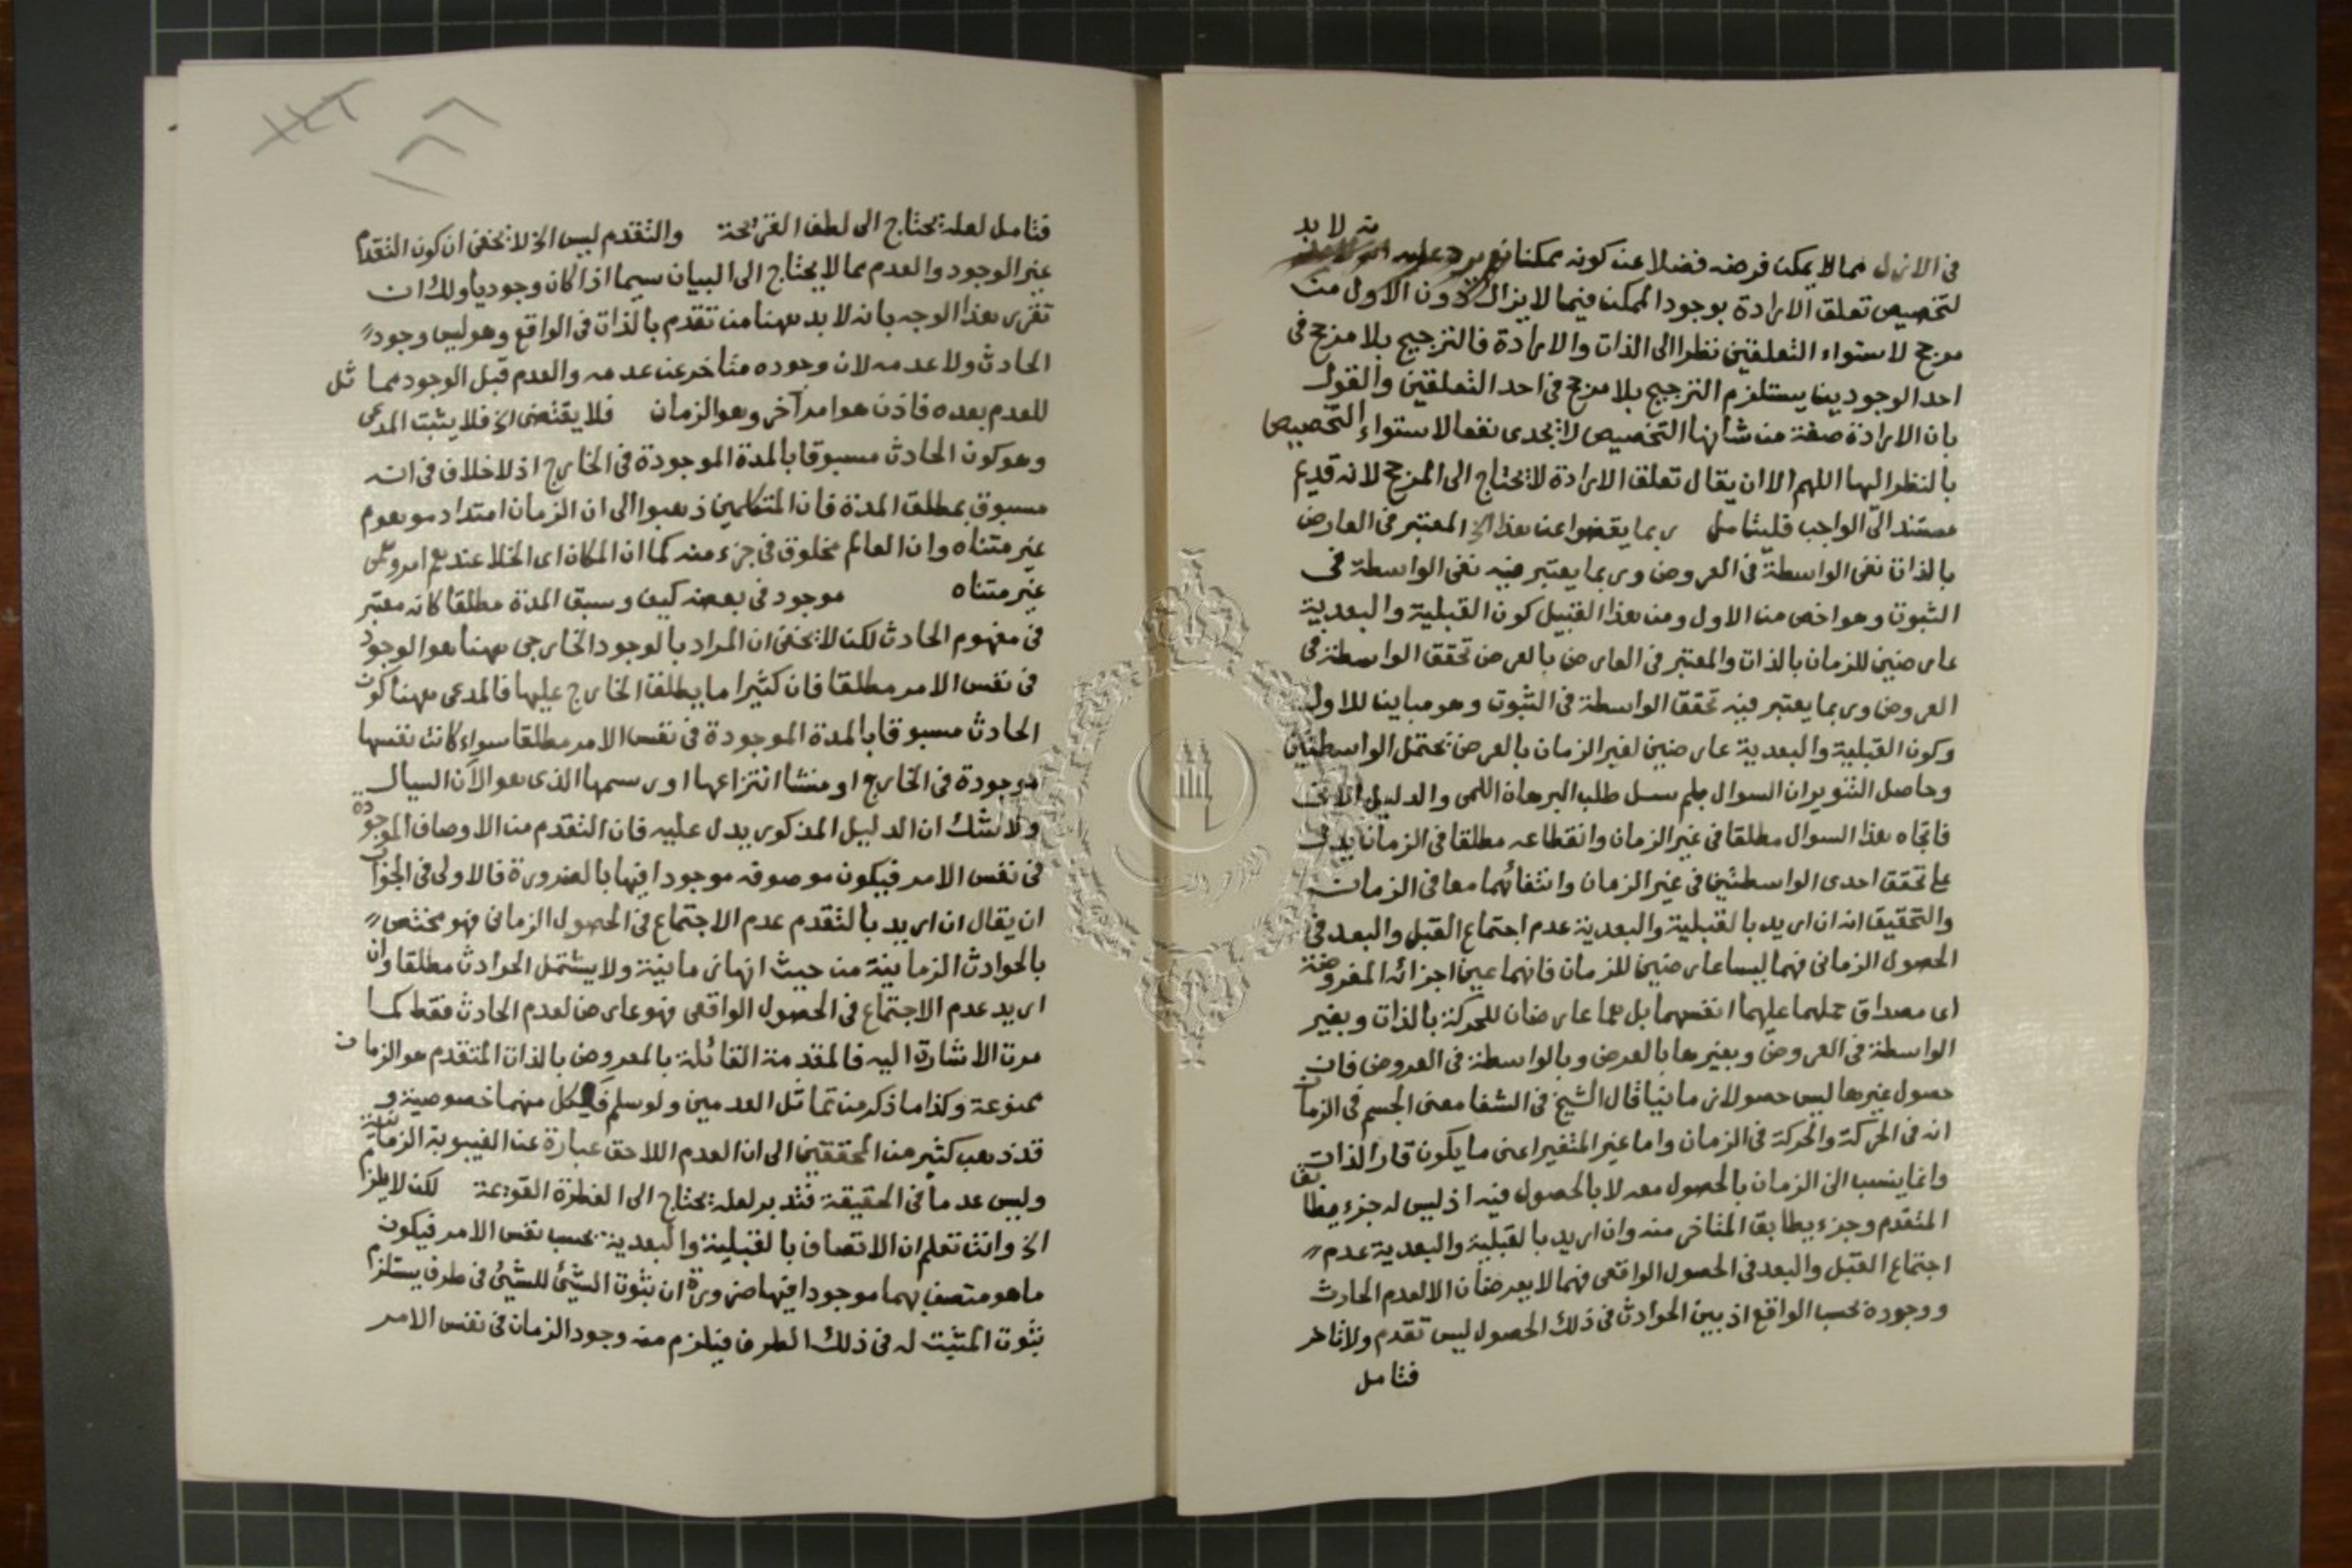 ثم لا بد
في الازل مما لا يمكن فرضه فضلا عن كونه ممكنا نعم يرد عليه
لتخصيص تعلق الارادة بوجود الممكن فيما لا يزال دون الاول من
مرجح لاستواء التعلقين نظرا الى الذات والارادة فالترجيح بلا مرجح في
احد الوجودين يستلزم الترجيح بلا مرجح في احد التعلقين والقول
بان الارادة صفة من شأنها التخصيص لا يجدى نفعا لاستواء التخصيص
بالنظر اليها اللهم الا ان يقال تعلق الارادة لا يحتاج الى المرجح لانه قديم
مستند الى الواجب فليتامل ربما يقضوا عن هذا الخ المعتبر في العارض
بالذات نفى الواسطة في العروض وربما يعتبر فيه نفى الواسطة في
الثبوت وهو اخص من الاول ومن هذا القبيل كون القبلية والبعدية
عارضين للزمان بالذات والمعتبر في العارض بالعرض تحقق الواسطة في
العروض وربما يعتبر فيه تحقق الواسطة في الثبوت وهو مباين للاول
وكون القبلية والبعدية عارضين لغير الزمان بالعرض يحتمل الواسطتين
وحاصل التنوير ان السوال بلم سسل طلب البرهان اللمى والدليل الانى
فاتجاه هذا السوال مطلقا في غير الزمان وانقطاعه مطلقا في الزمان يدل
على تحقق احدى الواسطتين في غير الزمان وانتفائهما معا في الزمان
والتحقيق انه ان اريد بالقبلية والبعدية عدم اجتماع القبل والبعد في
الحصول الزمانى فهما ليسا عارضين للزمان فانهما عين اجزائه المفروضة
اى مصداق حملهما عليهما انفسهما بل هما عارضان للحركة بالذات وبغير
الواسطة في العروض وبغيرها بالعرض وبالواسطة في العروض فان
حصول غيرها ليس حصولا زمانيا قال الشيخ في الشفا معنى الجسم في الزمان
انه في الحركة والحركة في الزمان واما غير المتغير اعنى ما يكون قار الذات
وانما ينسب الى الزمان بالحصول معه لا بالحصول فيه اذ ليس له جزء يطابق
المتقدم وجزء يطابق المتاخر منه وان اريد بالقبلية والبعدية عدم
اجتماع القبل والبعد في الحصول الواقعى فهما لا يعرضان الا لعدم الحادث
ووجوده بحسب الواقع اذ بين الحوادث في ذلك الحصول ليس تقدم ولا تاخر
فتامل
فتامل لعله يحتاج الى لطف القريحة والتقدم ليس الخ لا يخفى ان كون التقدم
غير الوجود والعدم مما لا يحتاج الى البيان سيما اذا كان وجوديا ولك ان
تقرر هذا الوجه بانه لا بد ههنا من تقدم بالذات في الواقع وهو ليس وجود
الحادث ولا عدمه لان وجوده متاخر عن عدمه والعدم قبل الوجود مماثل
للعدم بعده فاذن هو امر آخر وهو الزمان فلا يقتضى الخ فلا يثبت المدعى
وهو كون الحادث مسبوقا بالمدة الموجودة في الخارج اذ لا خلاف في انه
مسبوق بمطلق المدة فان المتكلمين ذهبوا الى ان الزمان امتداد موهوم
غير متناه وان العالم مخلوق في جزء منه كما ان المكان اى الخلا عندهم امر وهمى
غير متناه موجود في بعضه كيف وسبق المدة مطلقا كانه معتبر
في مفهوم الحادث لكن لا يخفى ان المراد بالوجود الخارجى ههنا هو الوجود
في نفس الامر مطلقا فان كثيرا ما يطلق الخارج عليها فالمدعى ههنا كون
الحادث مسبوقا بالمدة الموجودة في نفس الامر مطلقا سواء كانت نفسها
موجودة في الخارج او منشا انتزاعها او رسمها الذى هو الآن السيال
ولا شك ان الدليل المذكور يدل عليه فان التقدم من الاوصاف الموجودة
في نفس الامر فيكون موصوفه موجودا فيها بالضرورة فالاولى في الجواب
ان يقال ان اريد بالتقدم عدم الاجتماع في الحصول الزمانى فهو مختص
بالحوادث الزمانية من حيث انها زمانية ولا يشتمل الحوادث مطلقا وان
اريد عدم الاجتماع في الحصول الواقعى فهو عارض لعدم الحادث فقط كما
مرت الاشارة اليه فالمقدمة القائلة بالمعروض بالذات المتقدم هو الزمان
ممنوعة وكذا ما ذكر من تماثل العدمين ولو سلم فلكل منهما خصوصية و
قد ذهب كثير من المحققين الى ان العدم اللاحق عبارة عن الغيبوبة الزمانية
وليس عدما في الحقيقة فتدبر لعله يحتاج الى الفطرة القويمة لكن لا يلزم
الخ وانت تعلم ان الاتصاف بالقبلية والبعدية بحسب نفس الامر فيكون
ما هو متصف بهما موجودا فيها ضرورة ان ثبوت الشئ للشئ في طرف يستلزم
ثبوت المثبت له في ذلك الطرف فيلزم منه وجود الزمان في نفس الامر